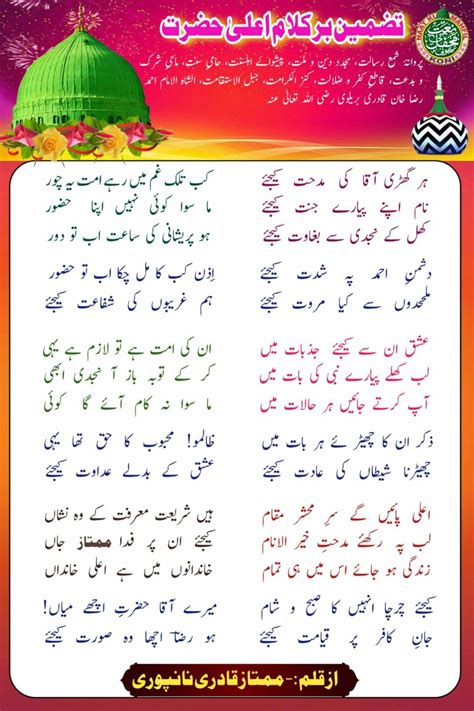 تضمین بر کلام اعلیٰ حضرت
پروانۂ شمع رسالت، مجدد دین و ملت، پیشوائے اہلسنت، حامیِ سنت، ماحیِ شرک
و بدعت، قاطع کفر و ضلالت، کنز الکرامت، جبل الاستقامت، الشاہ الامام احمد
رضا خان قادری بریلوی رضی اللہ تعالیٰ عنہ
ہر گھڑی آقا کی مدحت کیجئے
نام اپنے پیارے جنت کیجئے
کھل کے نجدی سے بغاوت کیجئے
دشمنِ احمد پہ شدت کیجئے
ملحدوں سے کیا مروت کیجئے
کب تلک غم میں رہے امت یہ چور
ما سوا کوئی نہیں اپنا حضور
ہو پریشانی کی ساعت اب تو دور
اِذن کب کا مل چکا اب تو حضور
ہم غریبوں کی شفاعت کیجئے
عشق ان سے کیجئے جذبات میں
لب کھلے پیارے نبی کی بات میں
آپ کرتے جائیں ہر حالات میں
ذکر ان کا چھیڑئے ہر بات میں
چھیڑنا شیطاں کی عادت کیجئے
ان کی امت ہے تو لازم ہے یہی
کر کے توبہ باز آ نجدی ابھی
ما سوا نہ کام آئے گا کوئی
ظالمو! محبوب کا حق تھا یہی
عشق کے بدلے عداوت کیجئے
اعلی پائیں گے سرِ محشر مقام
لب پہ رکھئے مدحتِ خیر الانام
زندگی ہو جائے اس میں ہی تمام
کیجئے چرچا انہیں کا صبح و شام
جانِ کافر پر قیامت کیجئے
ہیں شریعت معرفت کے وہ نشاں
کیجئے ان پر فدا ممتاز جاں
خاندانوں میں ہے اعلی خانداں
میرے آقا حضرتِ اچھے میاں!
ہو رضا اچھا وہ صورت کیجئے
از قلم:- ممتاز قادری نانپوری